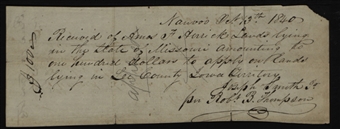 Nauvoo Oct 13th 1840
Received of Amos F Herrick Lands lying
in the State of Missouri amounting to
one hundred Dollars to apply on lands
lying in Lee County Iowa Territory
Joseph Smith Jr
per Robt B. Thompson
$100